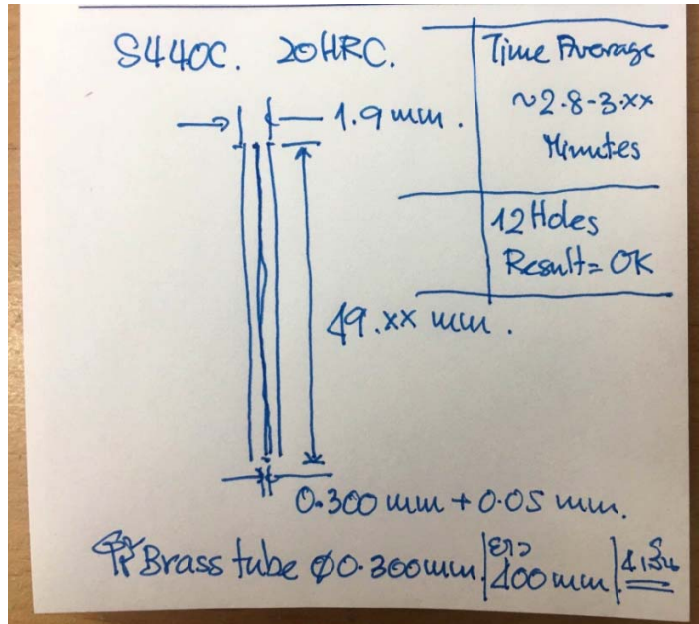 S440C. 20HRC.
Time Average
~2.8-3.xx
Minutes
1.9 mm.
12 Holes
Result = OK
49.xx mm.
0.300 mm + 0.05 mm.
ยาว
Brass tube Ø0.300mm. 400 mm 4 เส้น